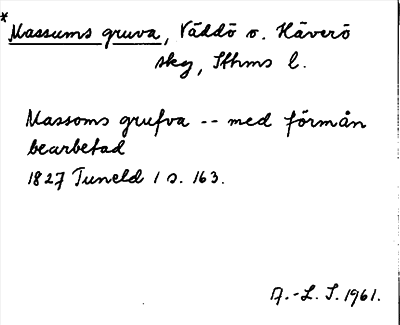 *Massums gruva, Väddö o. Häverö
skg, Sthms l.
Massoms grufva -- med förmån
bearbetad
1827 Tuneld 1 s. 163.
A.-L. S. 1961.